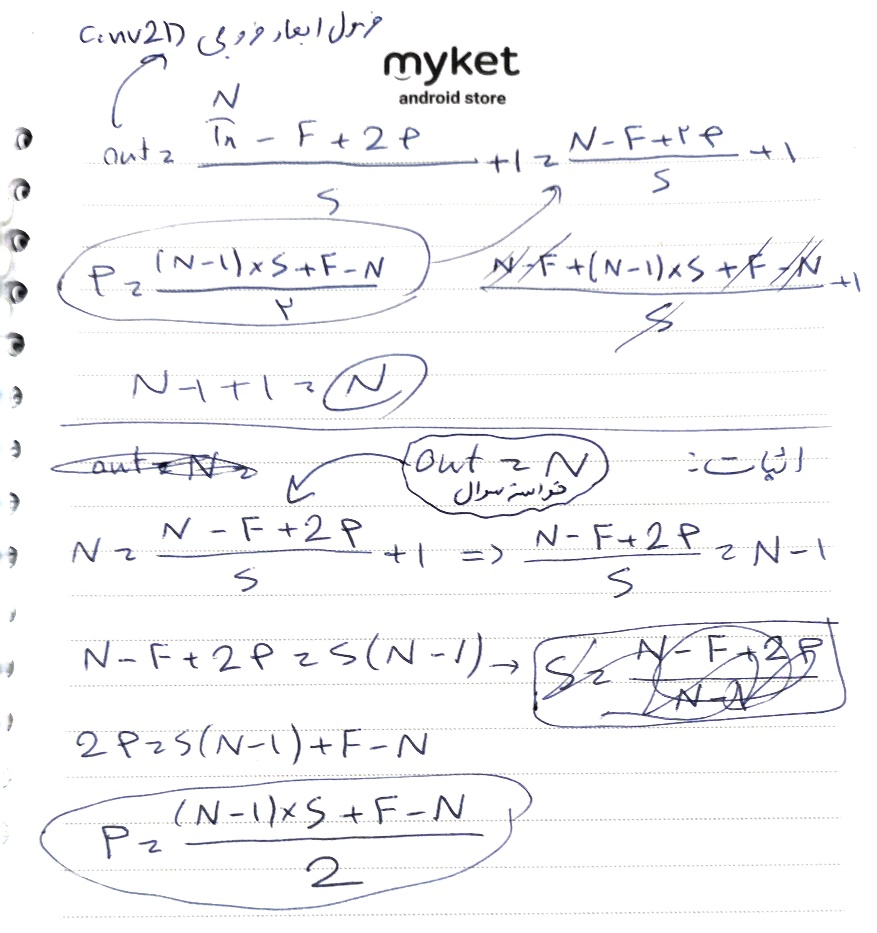 فرمول ابعاد خروجی Conv2D
myket
android store
N
out = (In - F + 2P) / S + 1 = (N - F + ۲P) / S + 1
P = ((N-1) × S + F - N) / ۲
(N - F + (N-1) × S + F - N) / S + 1
N - 1 + 1 = N
out = N =
اثبات:
Out = N
خواسته سوال
N = (N - F + 2P) / S + 1 => (N - F + 2P) / S = N - 1
N - F + 2P = S(N - 1) → S = (N - F + 2P) / N - N
2P = S(N-1) + F - N
P = ((N-1) × S + F - N) / 2